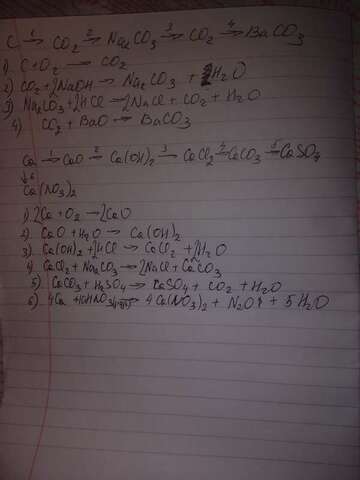 C 1→ CO2 2→ Na2CO3 3→ CO2 4→ BaCO3
1) C + O2 → CO2
2) CO2 + 2NaOH → Na2CO3 + H2O
3) Na2CO3 + 2HCl → 2NaCl + CO2 + H2O
4) CO2 + BaO → BaCO3
Ca 1→ CaO 2→ Ca(OH)2 3→ CaCl2 4→ CaCO3 5→ CaSO4
↓6
Ca(NO3)2
1) 2Ca + O2 → 2CaO
2) CaO + H2O → Ca(OH)2
3) Ca(OH)2 + 2HCl → CaCl2 + 2H2O
4) CaCl2 + Na2CO3 → 2NaCl + CaCO3
5) CaCO3 + H2SO4 → CaSO4 + CO2 + H2O
6) 4Ca + 10HNO3 → 4Ca(NO3)2 + N2O↑ + 5H2O